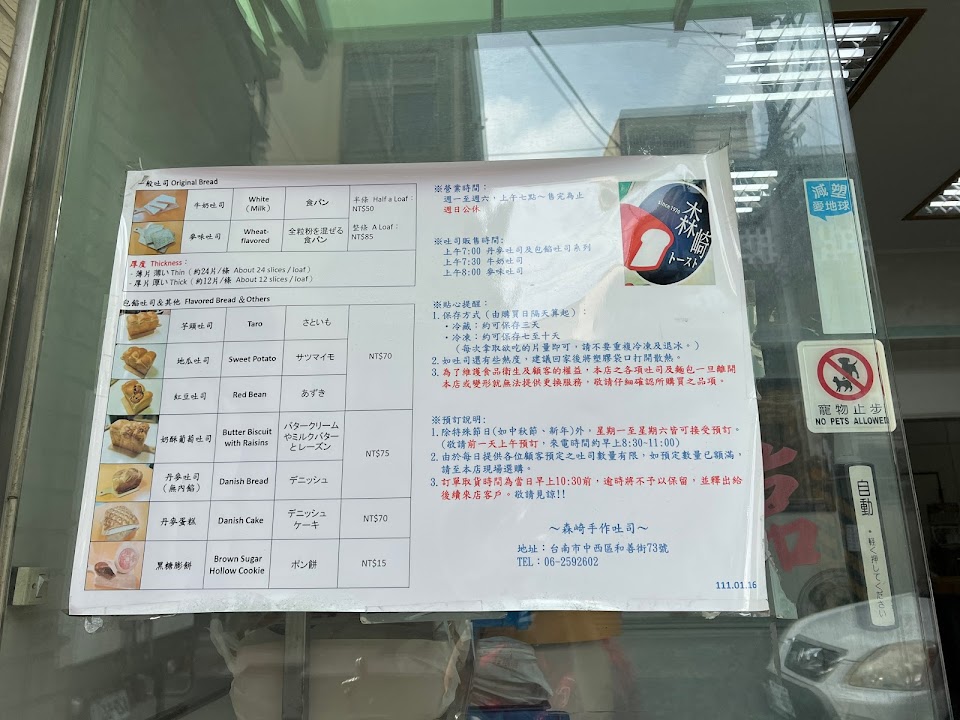 一般吐司 Original Bread
牛奶吐司 White (Milk) 食パン 半條 Half a Loaf: NT$50
麥味吐司 Wheat-flavored 全粒粉を混ぜる食パン 整條 A Loaf: NT$85
厚度 Thickness:
·薄片 薄い Thin (約24片/條 About 24 slices / loaf)
·厚片 厚い Thick (約12片/條 About 12 slices / loaf)
包餡吐司&其他 Flavored Bread & Others
芋頭吐司 Taro さといも
地瓜吐司 Sweet Potato サツマイモ NT$70
紅豆吐司 Red Bean あずき
奶酥葡萄吐司 Butter Biscuit with Raisins バタークリームやミルクバターとレーズン NT$75
丹麥吐司(無內餡) Danish Bread デニッシュ
丹麥蛋糕 Danish Cake デニッシュケーキ NT$70
黑糖膨餅 Brown Sugar Hollow Cookie ポン餅 NT$15
※營業時間:
週一至週六,上午七點~售完為止
週日公休
※吐司販售時間:
上午7:00 丹麥吐司及包餡吐司系列
上午7:30 牛奶吐司
上午8:00 麥味吐司
since 1978
森崎
トースト
※貼心提醒:
1.保存方式(由購買日隔天算起):
·冷藏:約可保存三天
·冷凍:約可保存七至十天
(每次拿取欲吃的片量即可,請不要重複冷凍及退冰。)
2.如吐司還有些熱度,建議回家後將塑膠袋口打開散熱。
3.為了維護食品衛生及顧客的權益,本店之各項吐司及麵包一旦離開
本店或變形就無法提供更換服務,敬請仔細確認所購買之品項。
※預訂說明:
1.除特殊節日(如中秋節、新年)外,星期一至星期六皆可接受預訂。
(敬請前一天上午預訂,來電時間約早上8:30~11:00)
2.由於每日提供各位顧客預定之吐司數量有限,如預定數量已額滿,
請至本店現場選購。
3.訂單取貨時間為當日早上10:30前,逾時將不予以保留,並釋出給
後續來店客戶。敬請見諒!!
~森崎手作吐司~
地址:台南市中西區和善街73號
TEL:06-2592602
111.01.16
減塑
愛地球
寵物止步
NO PETS ALLOWED
自動
軽く押してください